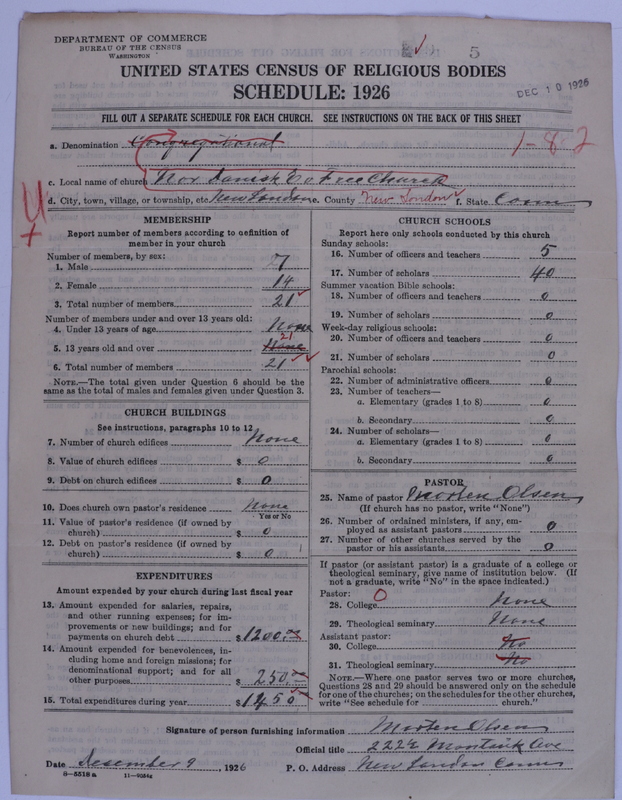 DEPARTMENT OF COMMERCE
BUREAU OF THE CENSUS
WASHINGTON
5
UNITED STATES CENSUS OF RELIGIOUS BODIES
SCHEDULE: 1926
DEC 10 1926
FILL OUT A SEPARATE SCHEDULE FOR EACH CHURCH. SEE INSTRUCTIONS ON THE BACK OF THIS SHEET
a. Denomination Congregational
1-82
c. Local name of church Nor Danish Ev Free Church
d. City, town, village, or township, etc. New London e. County New London f. State Conn
MEMBERSHIP
Report number of members according to definition of member in your church
Number of members, by sex:
1. Male 7
2. Female 14
3. Total number of members 21
Number of members under and over 13 years old:
4. Under 13 years of age None
5. 13 years old and over None 21
6. Total number of members 21
NOTE.—The total given under Question 6 should be the
same as the total of males and females given under Question 3.
CHURCH BUILDINGS
See instructions, paragraphs 10 to 12
7. Number of church edifices None
8. Value of church edifices $ 0
9. Debt on church edifices $ 0
10. Does church own pastor's residence None
Yes or No
11. Value of pastor's residence (if owned by
church) $ 0
12. Debt on pastor's residence (if owned by
church) $ 0
EXPENDITURES
Amount expended by your church during last fiscal year
13. Amount expended for salaries, repairs,
and other running expenses; for im-
provements or new buildings; and for
payments on church debt $ 1200.00
14. Amount expended for benevolences, in-
cluding home and foreign missions; for
denominational support; and for all
other purposes $ 250.00
15. Total expenditures during year $ 1450
CHURCH SCHOOLS
Report here only schools conducted by this church
Sunday schools:
16. Number of officers and teachers 5
17. Number of scholars 40
Summer vacation Bible schools:
18. Number of officers and teachers 0
19. Number of scholars 0
Week-day religious schools:
20. Number of officers and teachers 0
21. Number of scholars 0
Parochial schools:
22. Number of administrative officers 0
23. Number of teachers—
a. Elementary (grades 1 to 8) 0
b. Secondary 0
24. Number of scholars—
a. Elementary (grades 1 to 8) 0
b. Secondary 0
PASTOR
25. Name of pastor Morten Olsen
(If church has no pastor, write "None")
26. Number of ordained ministers, if any, em-
ployed as assistant pastors 0
27. Number of other churches served by the
pastor or his assistants 0
If pastor (or assistant pastor) is a graduate of a college or
theological seminary, give name of institution below. (If
not a graduate, write "No" in the space indicated.)
Pastor: 0
28. College None
29. Theological seminary None
Assistant pastor:
30. College No
31. Theological seminary No
NOTE.—Where one pastor serves two or more churches,
Questions 28 and 29 should be answered only on the schedule
for one of the churches; on the schedules for the other churches,
write "See schedule for church."
Signature of person furnishing information Morten Olsen
Official title 222½ Montauk Ave
Date Desember 9, 1926 P. O. Address New London Conn
8-5518a 11-9054g